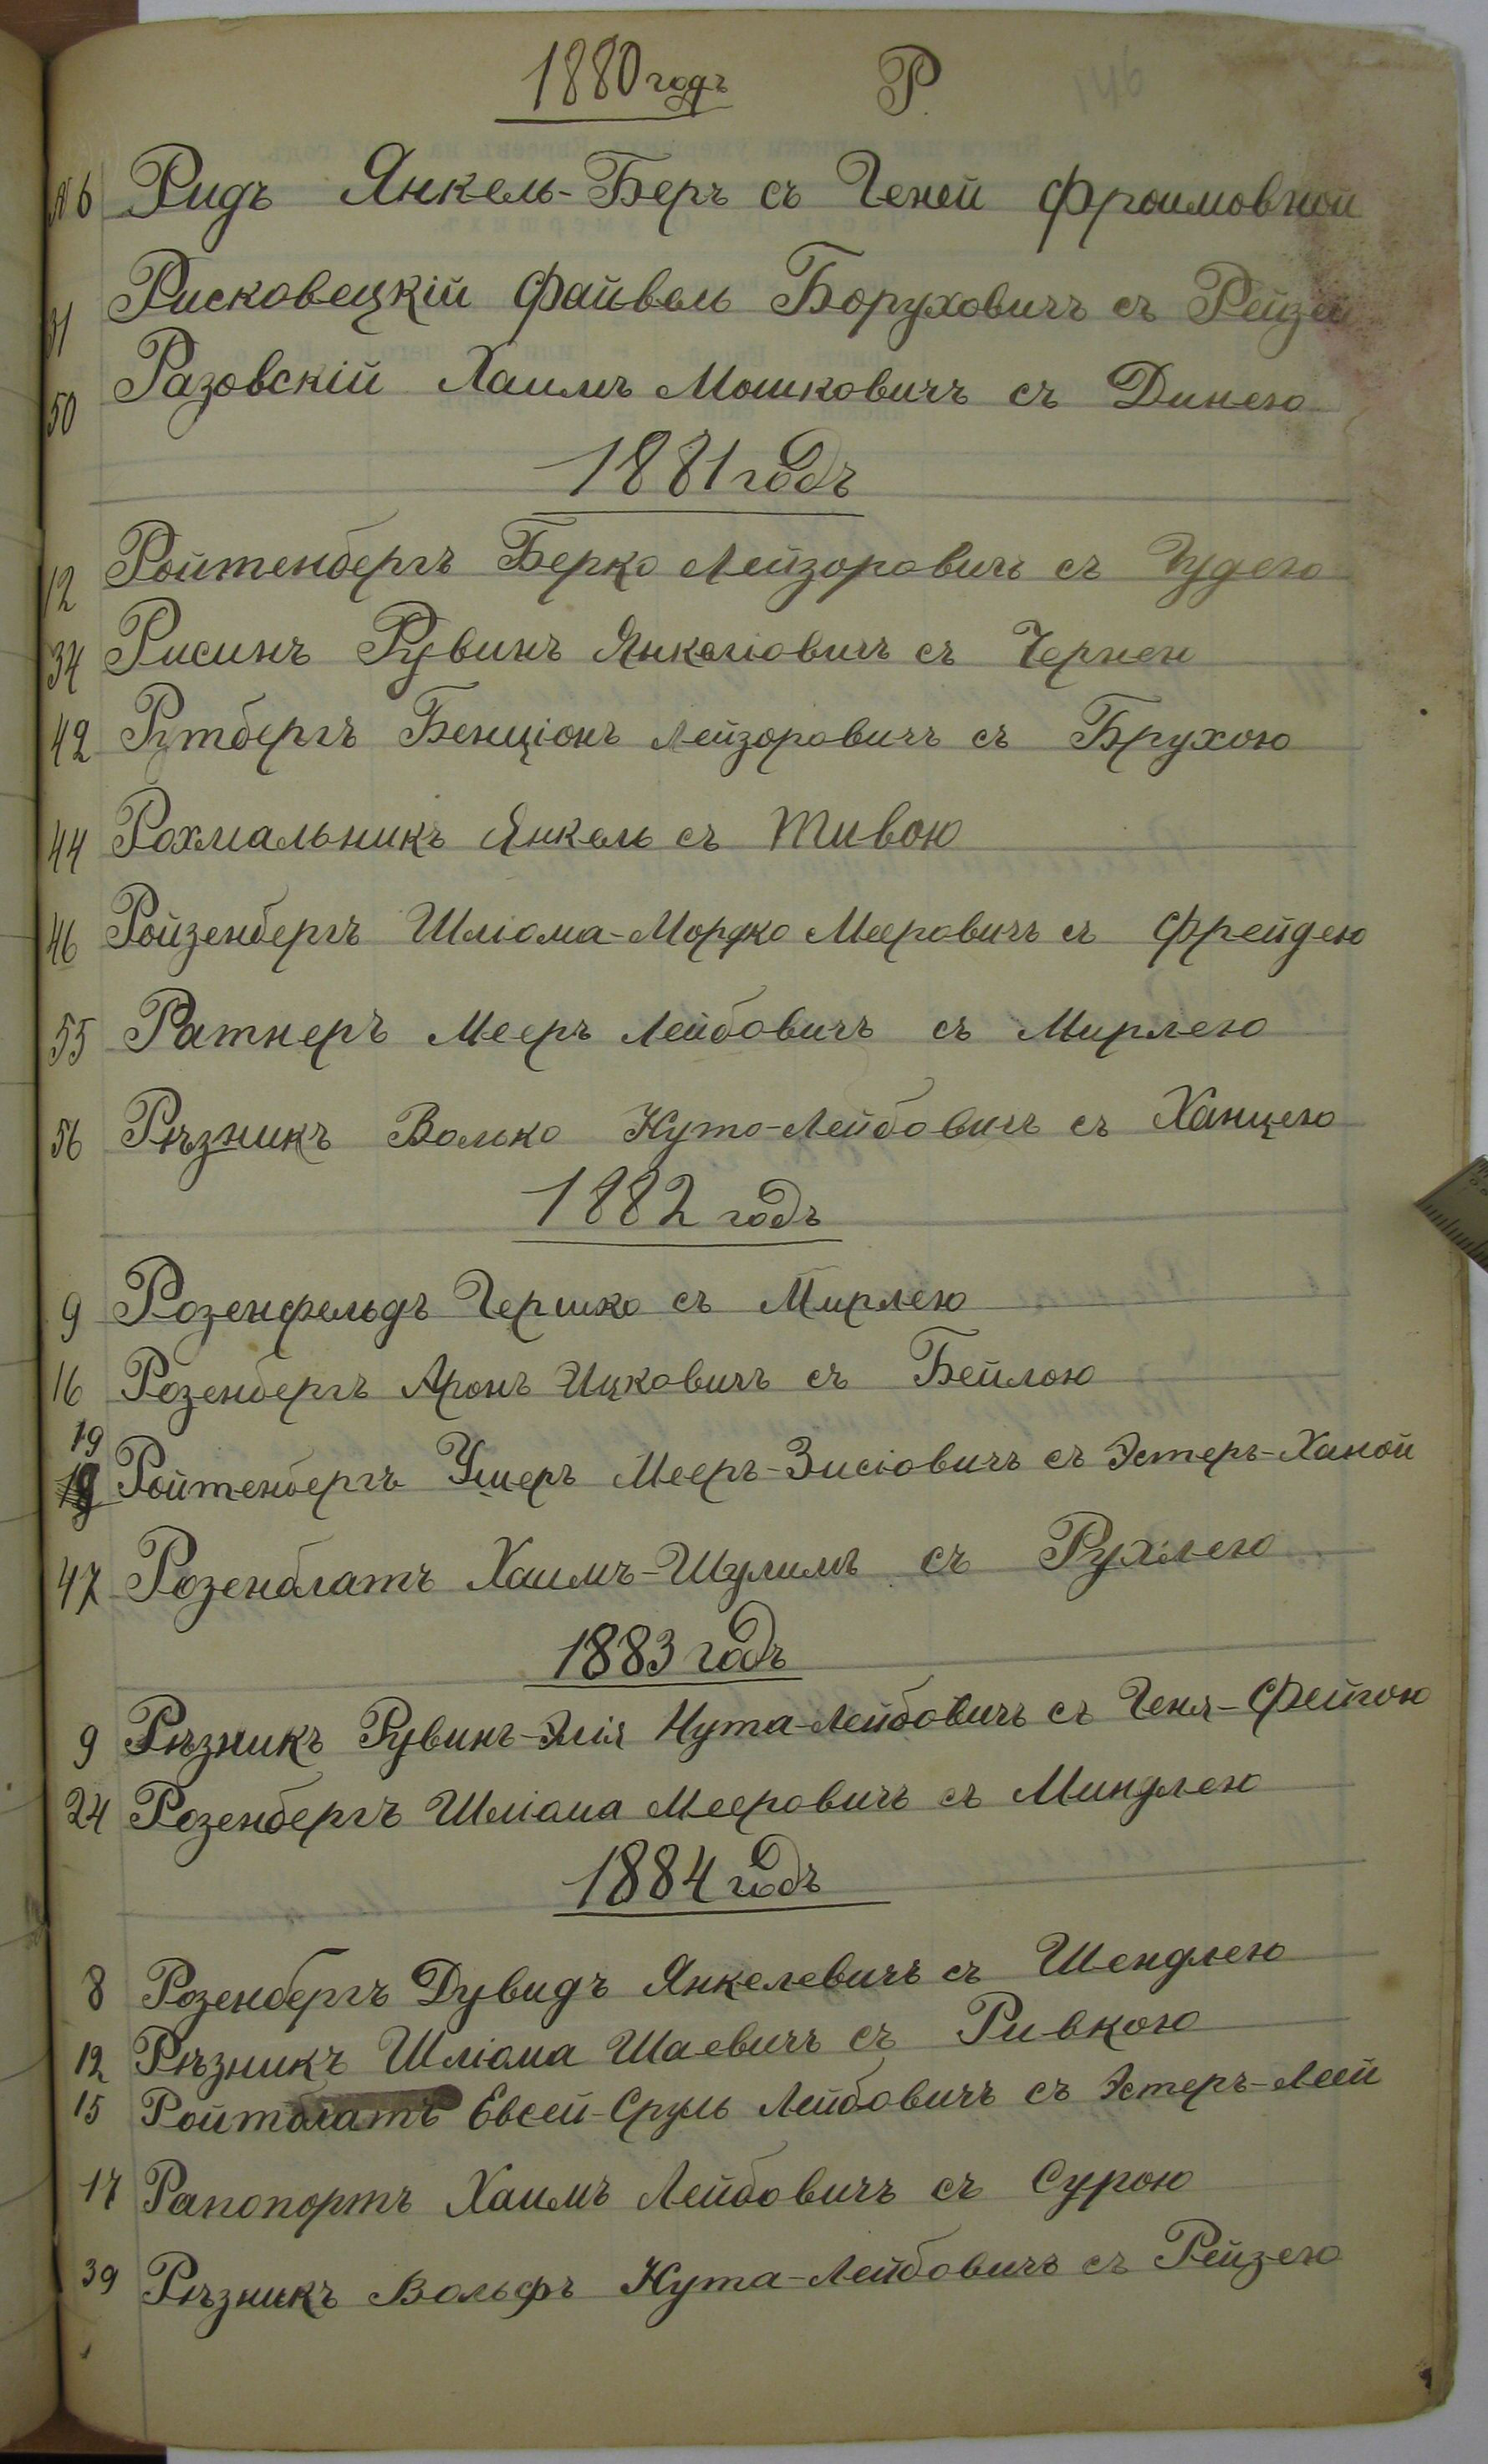 1880 годъ Р.
№ 6 Ридъ Янкель-Беръ съ Геней Фроимовной
31 Рисковецкій Файвель Боруховичъ съ Рейзей
50 Разовскій Хаимъ Мошковичъ съ Динею
1881 годъ
12 Ройтенбергъ Берко Лейзоровичъ съ Гудею
34 Рисинъ Рувинъ Янкелiовичъ съ Черней
42 Рутбергъ Бенціонъ Лейзоровичъ съ Брухою
44 Рохмальникъ Янкель съ Тивою
46 Ройзенбергъ Шліома-Мордко Мееровичъ съ Фрейдею
55 Ратнеръ Мееръ Лейбовичъ съ Мирлею
56 Рѣзникъ Волько Нуто-Лейбовичъ съ Ханцею
1882 годъ
9 Розенфельдъ Гершко съ Мирлею
16 Розенбергъ Аронъ Ицковичъ съ Бейлою
19
Ройтенбергъ Ушеръ Мееръ-Зисіовичъ съ Эстеръ-Ханой
47 Розенблатъ Хаимъ-Шулимъ съ Рухлею
1883 годъ
9 Рѣзникъ Рувинъ-Элія Нута-Лейбовичъ съ Геня-Фейгою
24 Розенбергъ Шліома Мееровичъ съ Миндлею
1884 годъ
8 Розенбергъ Дувидъ Янкелевичъ съ Шендлею
12 Рѣзникъ Шліома Шаевичъ съ Ривкою
15 Ройтблатъ Евсей-Сруль Лейбовичъ съ Эстеръ-Леей
17 Рапопортъ Хаимъ Лейбовичъ съ Сурою
39 Рѣзникъ Вольфъ Нута-Лейбовичъ съ Рейзею